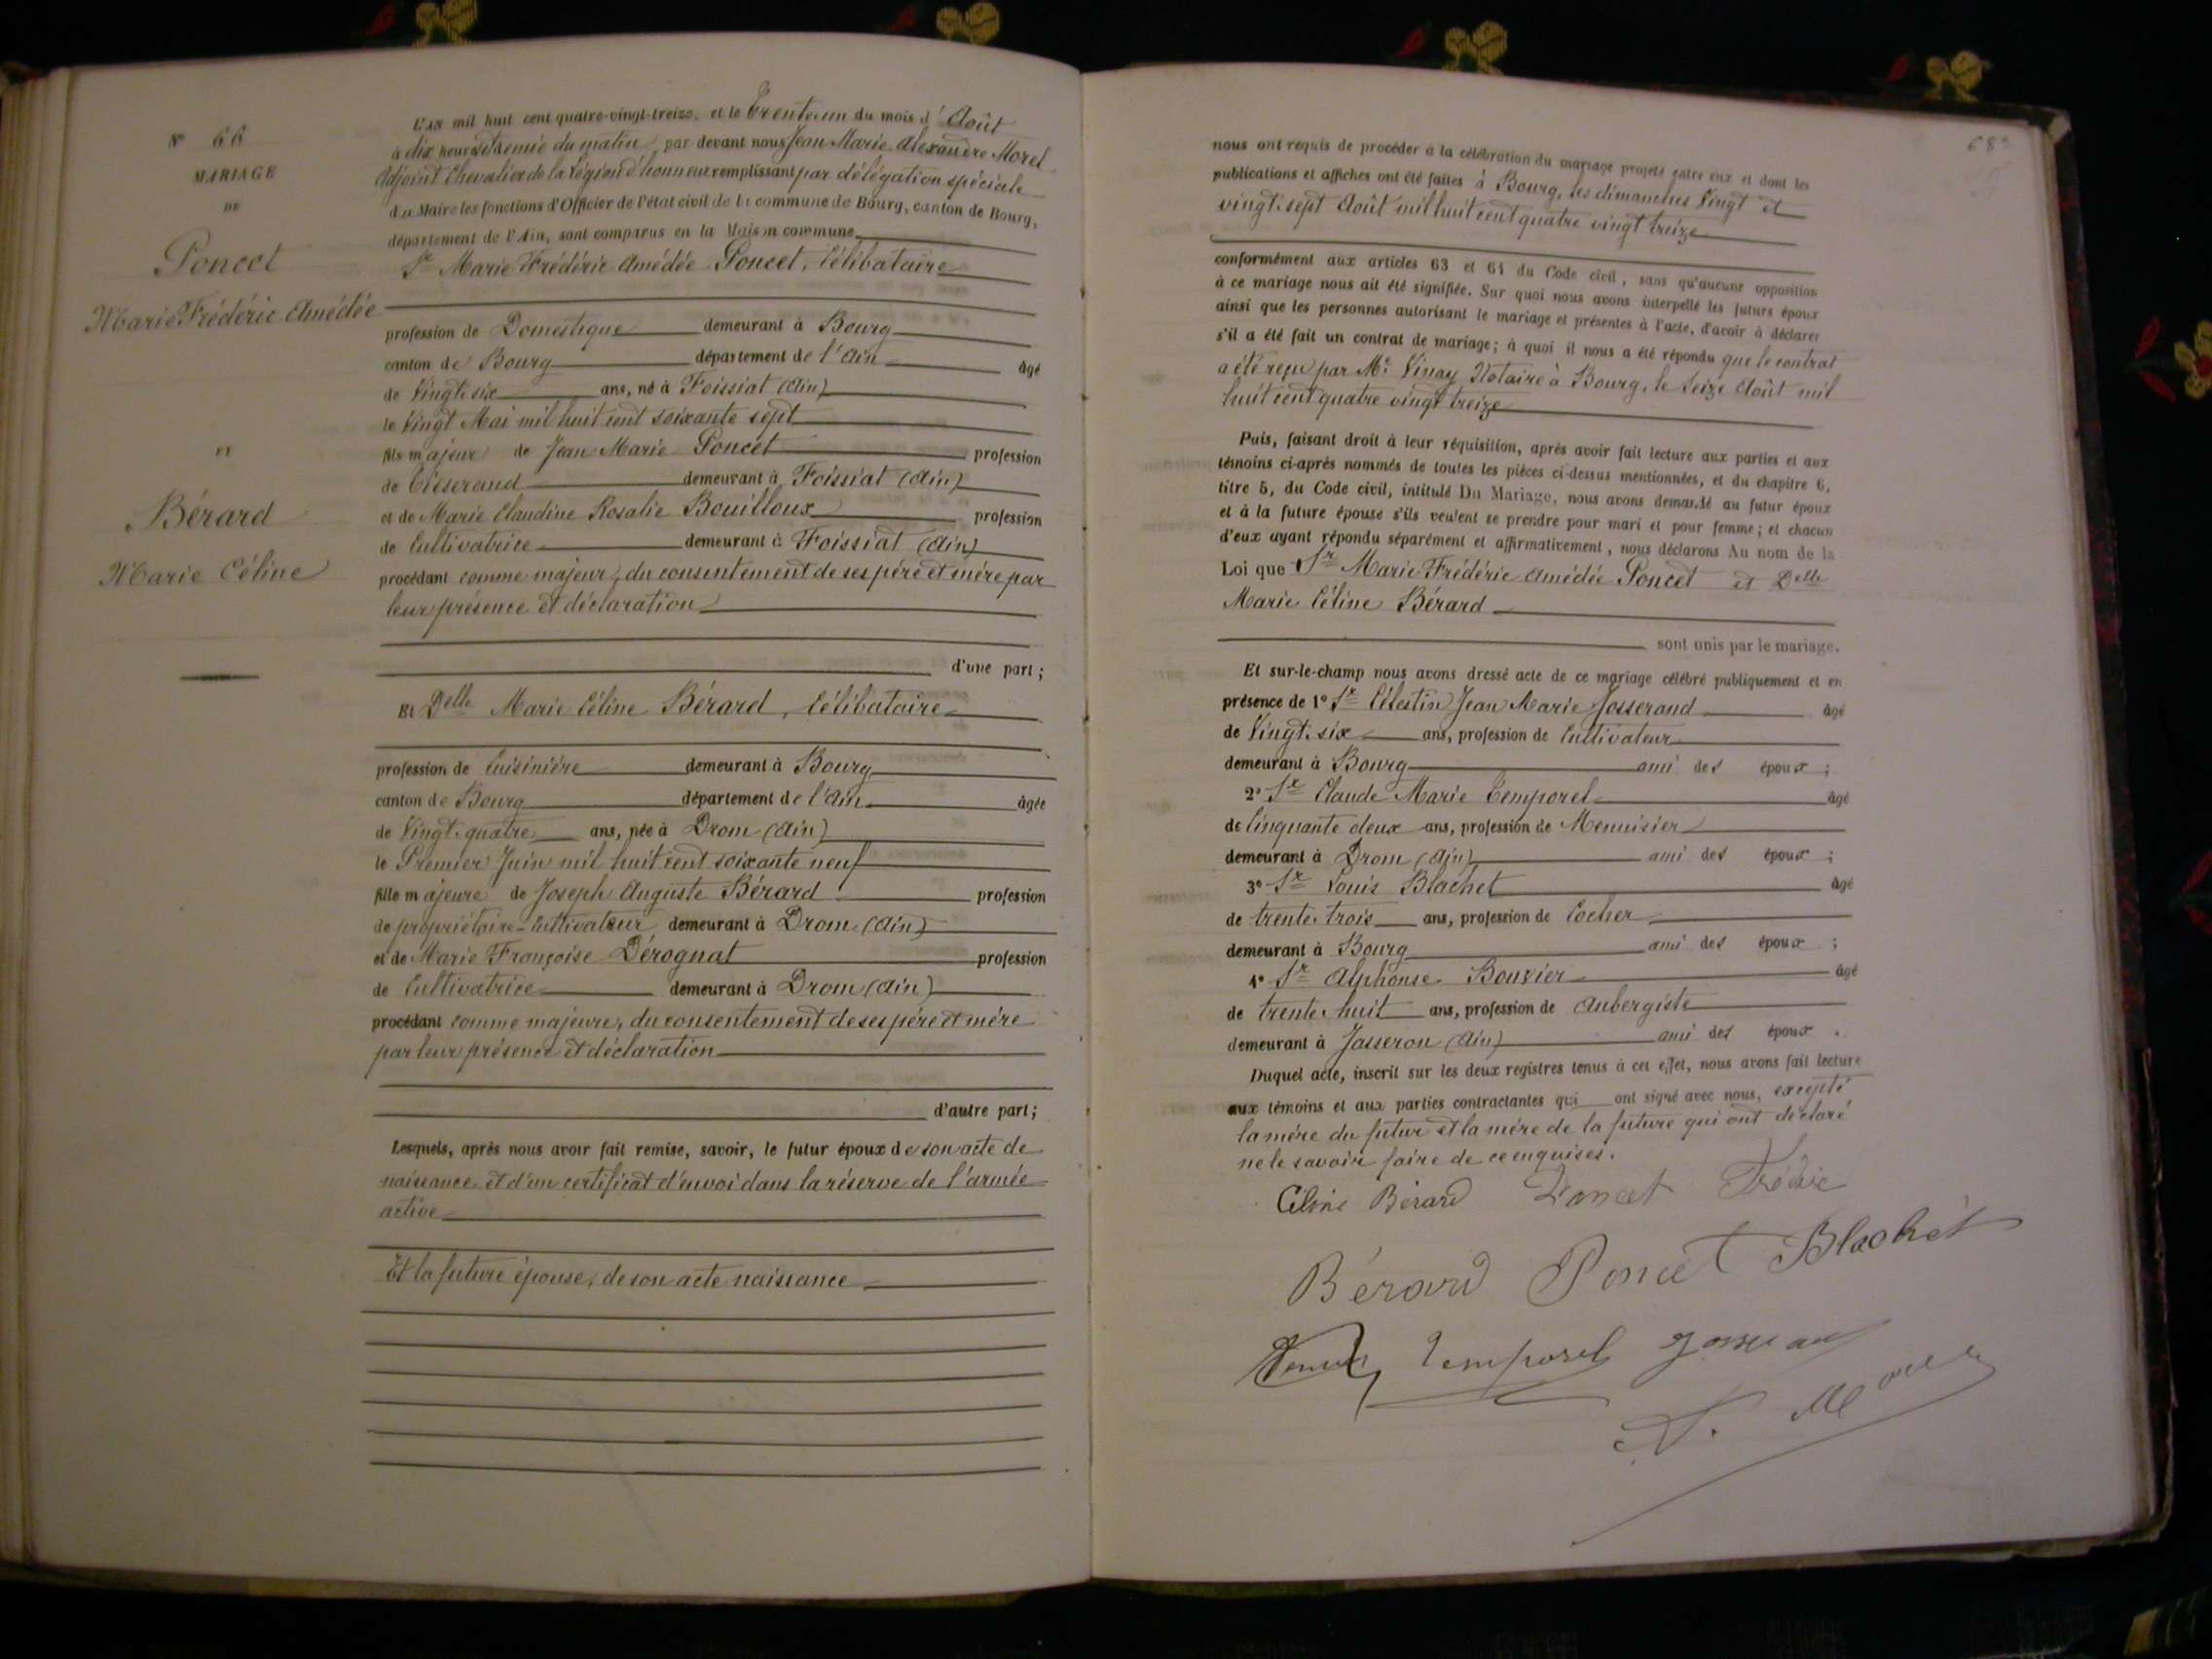 N° 66
MARIAGE
DE
Poncet
Marie Frédéric Amédée
ET
Bérard
Marie Céline
L'AN mil huit cent quatre-vingt-treize, et le Trente un du mois d'Août
à dix heures et demie du matin, par devant nous Jean Marie Alexandre Morel
Adjoint Chevalier de la Légion d'honneur remplissant par délégation spéciale
du Maire les fonctions d'Officier de l'état civil de la commune de Bourg, canton de Bourg,
département de l'Ain, sont comparus en la Maison commune
Sr Marie Frédéric Amédée Poncet, Célibataire
profession de Domestique demeurant à Bourg
canton de Bourg département de l'Ain âgé
de Vingt-six ans, né à Foissiat (Ain)
le Vingt Mai mil huit cent soixante sept
fils majeur de Jean Marie Poncet profession
de Tisserand demeurant à Foissiat (Ain)
et de Marie Claudine Rosalie Bouilloux profession
de Cultivatrice demeurant à Foissiat (Ain)
procédant comme majeur, du consentement de ses père et mère par
leur présence et déclaration
d'une part ;
Et Delle Marie Céline Bérard, Célibataire
profession de Cuisinière demeurant à Bourg
canton de Bourg département de l'Ain âgée
de Vingt-quatre ans, née à Drom (Ain)
le Premier Juin mil huit cent soixante neuf
fille majeure de Joseph Auguste Bérard profession
de propriétaire-Cultivateur demeurant à Drom (Ain)
et de Marie Françoise Dérognat profession
de Cultivatrice demeurant à Drom (Ain)
procédant comme majeure, du consentement de ses père et mère
par leur présence et déclaration
d'autre part ;
Lesquels, après nous avoir fait remise, savoir, le futur époux de son acte de
naissance et d'un certificat d'envoi dans la réserve de l'armée
active
Et la future épouse, de son acte naissance
nous ont requis de procéder à la célébration du mariage projeté entre eux et dont les
publications et affiches ont été faites à Bourg, les dimanches Vingt et
vingt-sept Août mil huit cent quatre vingt treize
conformément aux articles 63 et 64 du Code civil, sans qu'aucune opposition
à ce mariage nous ait été signifiée. Sur quoi nous avons interpellé les futurs époux
ainsi que les personnes autorisant le mariage et présentes à l'acte, d'avoir à déclarer
s'il a été fait un contrat de mariage ; à quoi il nous a été répondu que le contrat
a été reçu par Me Vinay Notaire à Bourg, le Seize Août mil
huit cent quatre vingt treize
Puis, faisant droit à leur réquisition, après avoir fait lecture aux parties et aux
témoins ci-après nommés de toutes les pièces ci-dessus mentionnées, et du chapitre 6,
titre 5, du Code civil, intitulé Du Mariage, nous avons demandé au futur époux
et à la future épouse s'ils veulent se prendre pour mari et pour femme ; et chacun
d'eux ayant répondu séparément et affirmativement, nous déclarons Au nom de la
Loi que Sr Marie Frédéric Amédée Poncet et Delle
Marie Céline Bérard
sont unis par le mariage.
Et sur-le-champ nous avons dressé acte de ce mariage célébré publiquement et en
présence de 1° Sr Célestin Jean Marie Josserand âgé
de Vingt-six ans, profession de Cultivateur
demeurant à Bourg ami des époux ;
2° Sr Claude Marie Temporel âgé
de Cinquante deux ans, profession de Menuisier
demeurant à Drom (Ain) ami des époux ;
3° Sr Louis Blachet âgé
de trente-trois ans, profession de Cocher
demeurant à Bourg ami des époux ;
4° Sr Alphonse Bouvier âgé
de trente-huit ans, profession de Aubergiste
demeurant à Jasseron (Ain) ami des époux .
Duquel acte, inscrit sur les deux registres tenus à cet effet, nous avons fait lecture
aux témoins et aux parties contractantes qui ont signé avec nous, excepté
la mère du futur et la mère de la future qui ont déclaré
ne le savoir faire de ce enquises.
Céline Bérard Poncet Frédéric
Bérard Poncet Blachet
Temporel
A. Morel